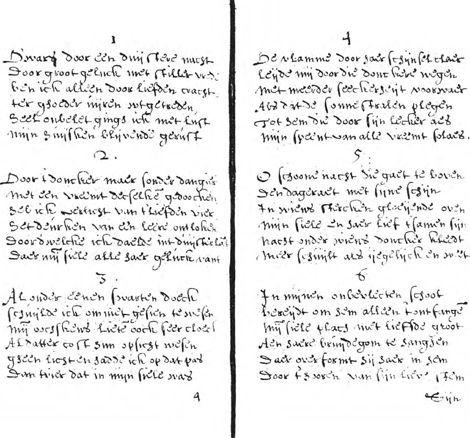 1
Dwars door een duijstere nacht
Door groot geluck met stiller vrede
ben ick alleen door liefden cracht
ter goeder uijren wtgetreden
Seer onbelet gingh ick met lust
mijn huijsken blijvende gerust
2.
Door t doncker maer sonder dangier
met een vremt decselken gedoocken
heb ick verlicht van t liefden vier
het deurken van een leere ontloken
Door dwelcke ick daelde int duijster
Daer mij siele alle haer geluck vant
3
Al onder eenen swarten doeck
schuilde ick om niet gesien te wesen
mij liete oock seer cloeck
Al datter cost sijn opsicht wesen
gheen licht en hadde ick op dat pas
Dan t vier dat in mijn siele was
4
4
De vlamme door haer schijnsel claer
leijde mij door die donckere wegen
met meerder seeckerheijt voorwaer
Als dit de sonnestralen plegen
Tot hem die door sijn lecker aes
mijn speent van alle vreemt solaes.
5
O schoone nacht die gaet te boven
Den dageraet met sijne schijn
In wiens stercken gloeijende oven
mijn siele en haer lief tsamen sijn
nacht onder wiens doncker kleedt
meer schuijlt als ijegelijck en weet
6
In mijnen onbevlecten schoot
bereijdt om hem alleen t ontfangen
mij siele plach met liefde groot
Aen haere bruijdegom te hanghen
Daer overformt sij haer in hem
Door t hooren van sijn lieve stem
Sijn